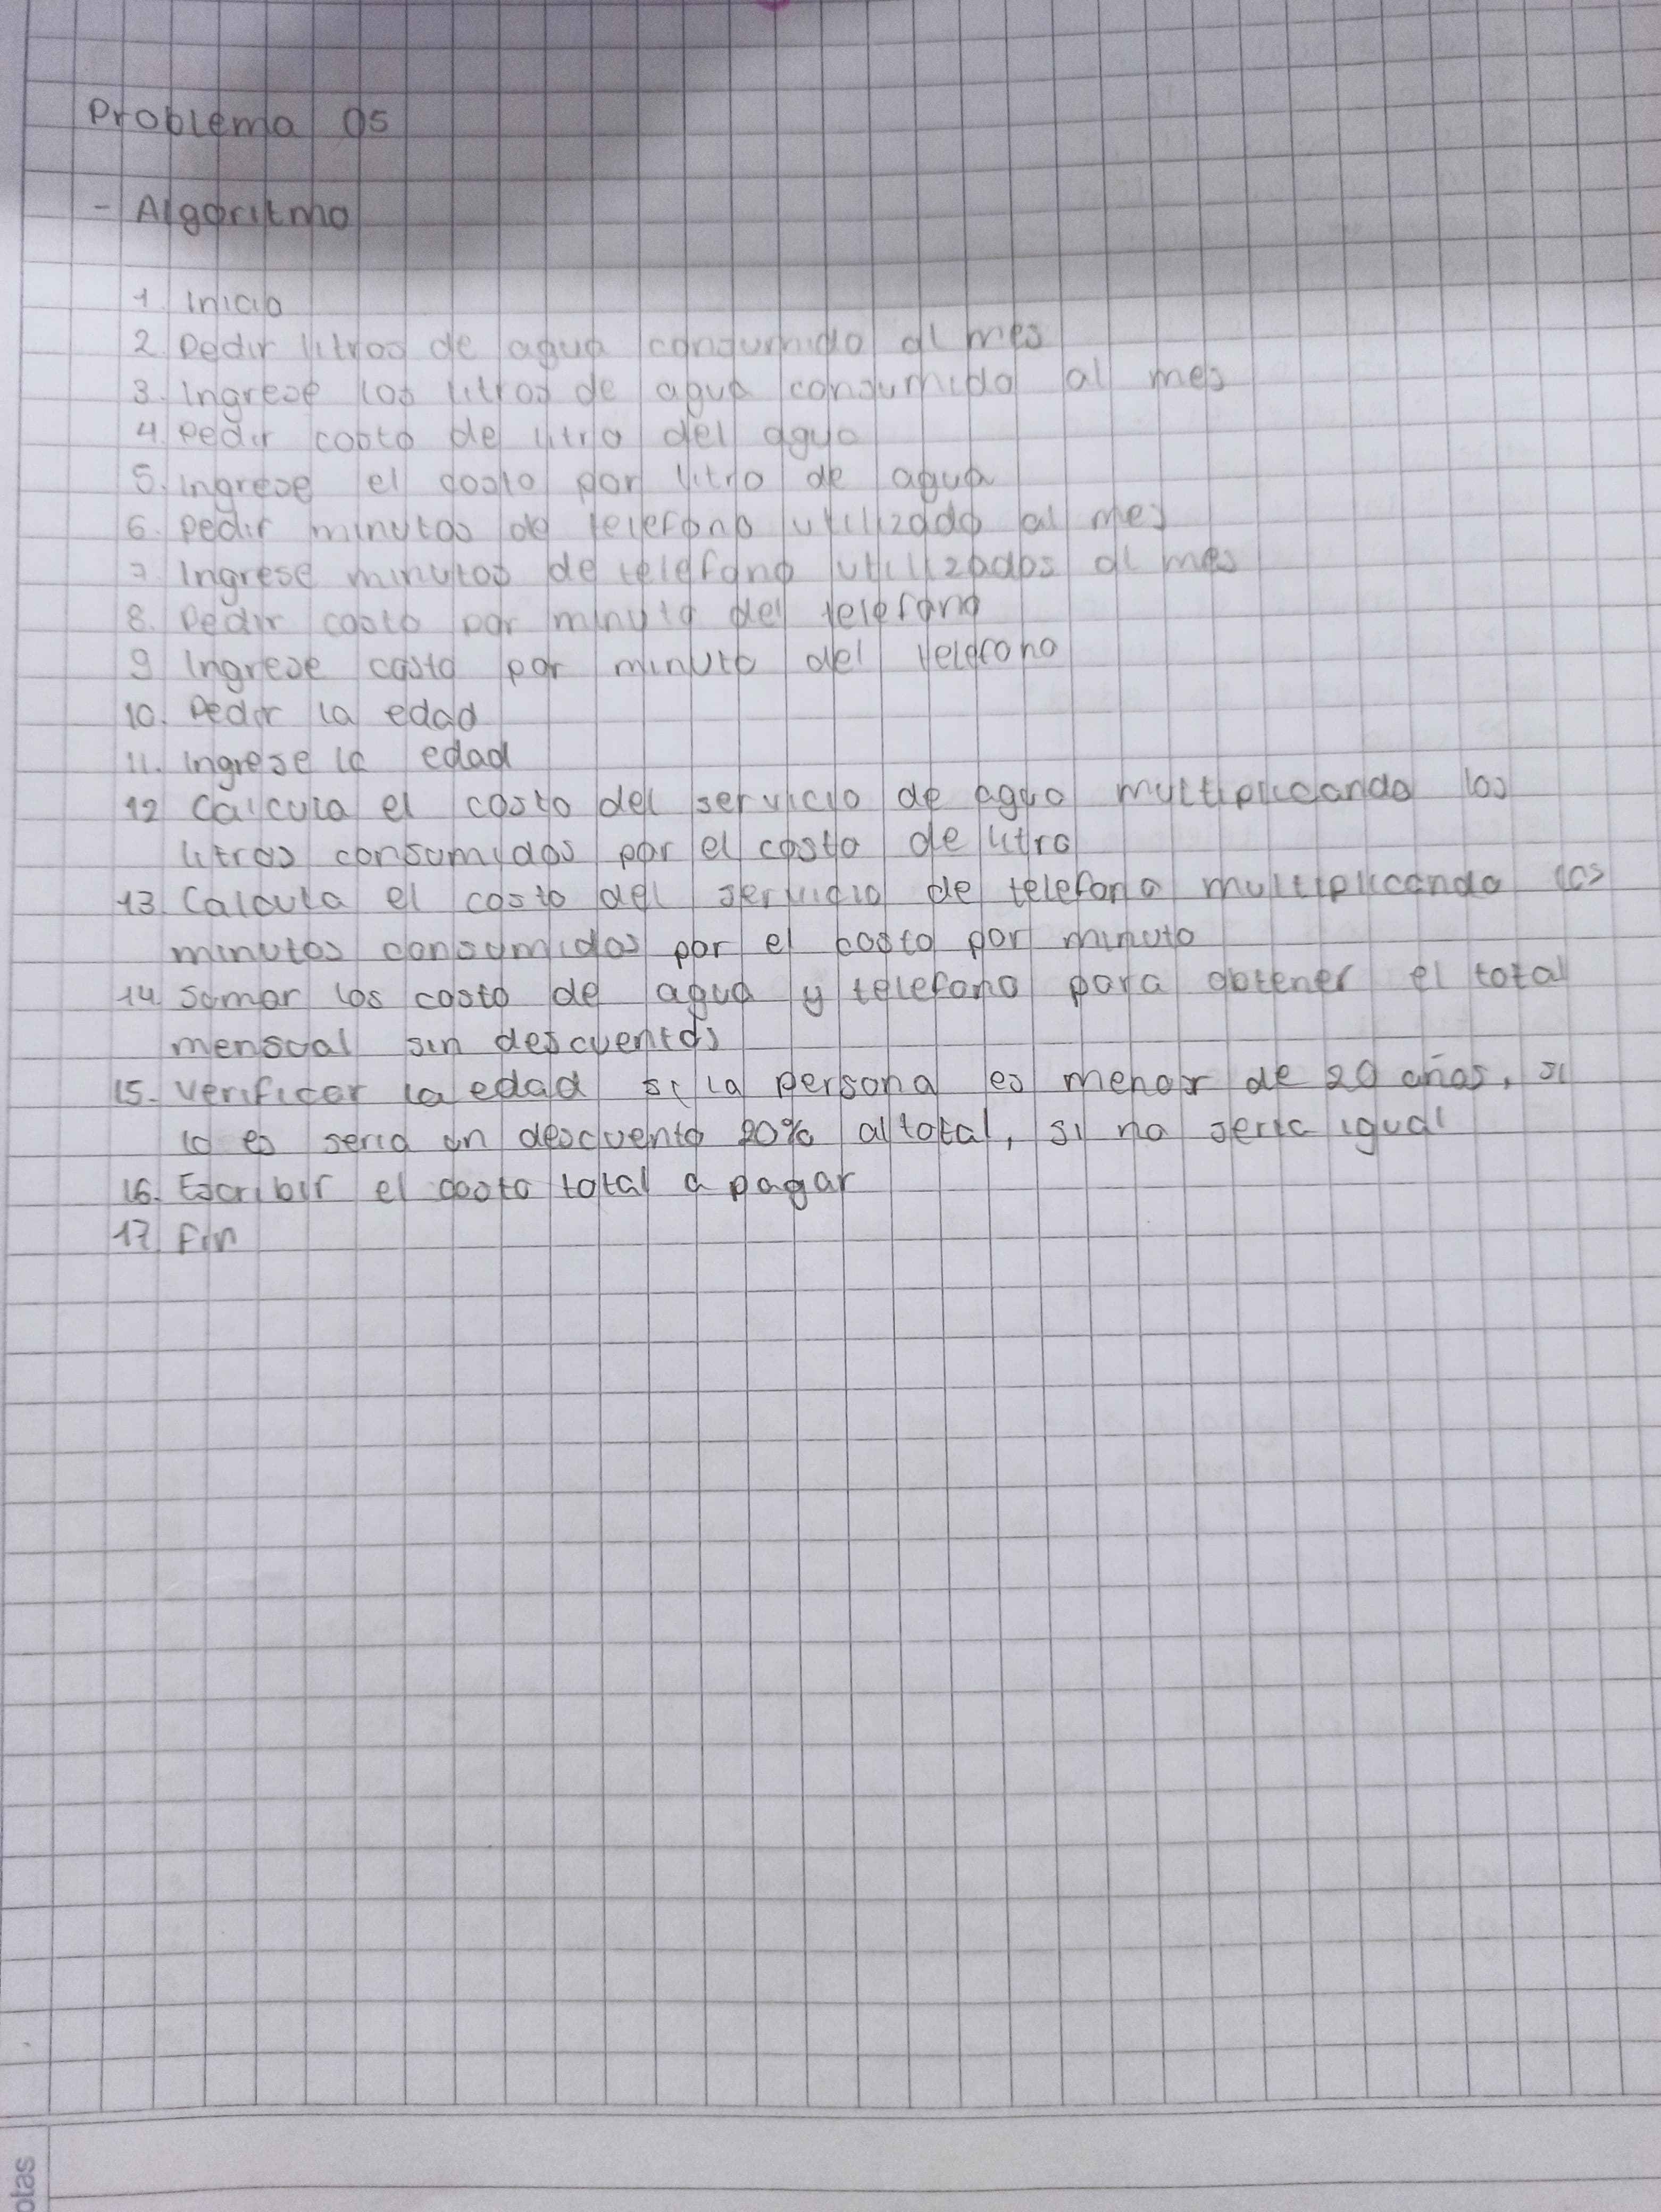 Problema 05
- Algoritmo
1. Inicio
2. Pedir litros de agua consumido al mes
3. Ingrese los litros de agua consumido al mes
4. Pedir costo de litro del agua
5. Ingrese el costo por litro de agua
6. Pedir minutos de telefono utilizado al mes
7. Ingrese minutos de telefono utilizados al mes
8. Pedir costo por minuto del telefono
9. Ingrese costo por minuto del telefono
10. Pedir la edad
11. Ingrese la edad
12. Calcula el costo del servicio de agua multiplicando los
litros consumidos por el costo de litro
13. Calcula el costo del servicio de telefono multiplicando los
minutos consumidos por el costo por minuto
14. Sumar los costo de agua y telefono para obtener el total
mensual sin descuentos
15. Verificar la edad si la persona es menor de 20 años, si
lo es seria un descuento 20% al total, si no seria igual
16. Escribir el costo total a pagar
17. Fin
otas